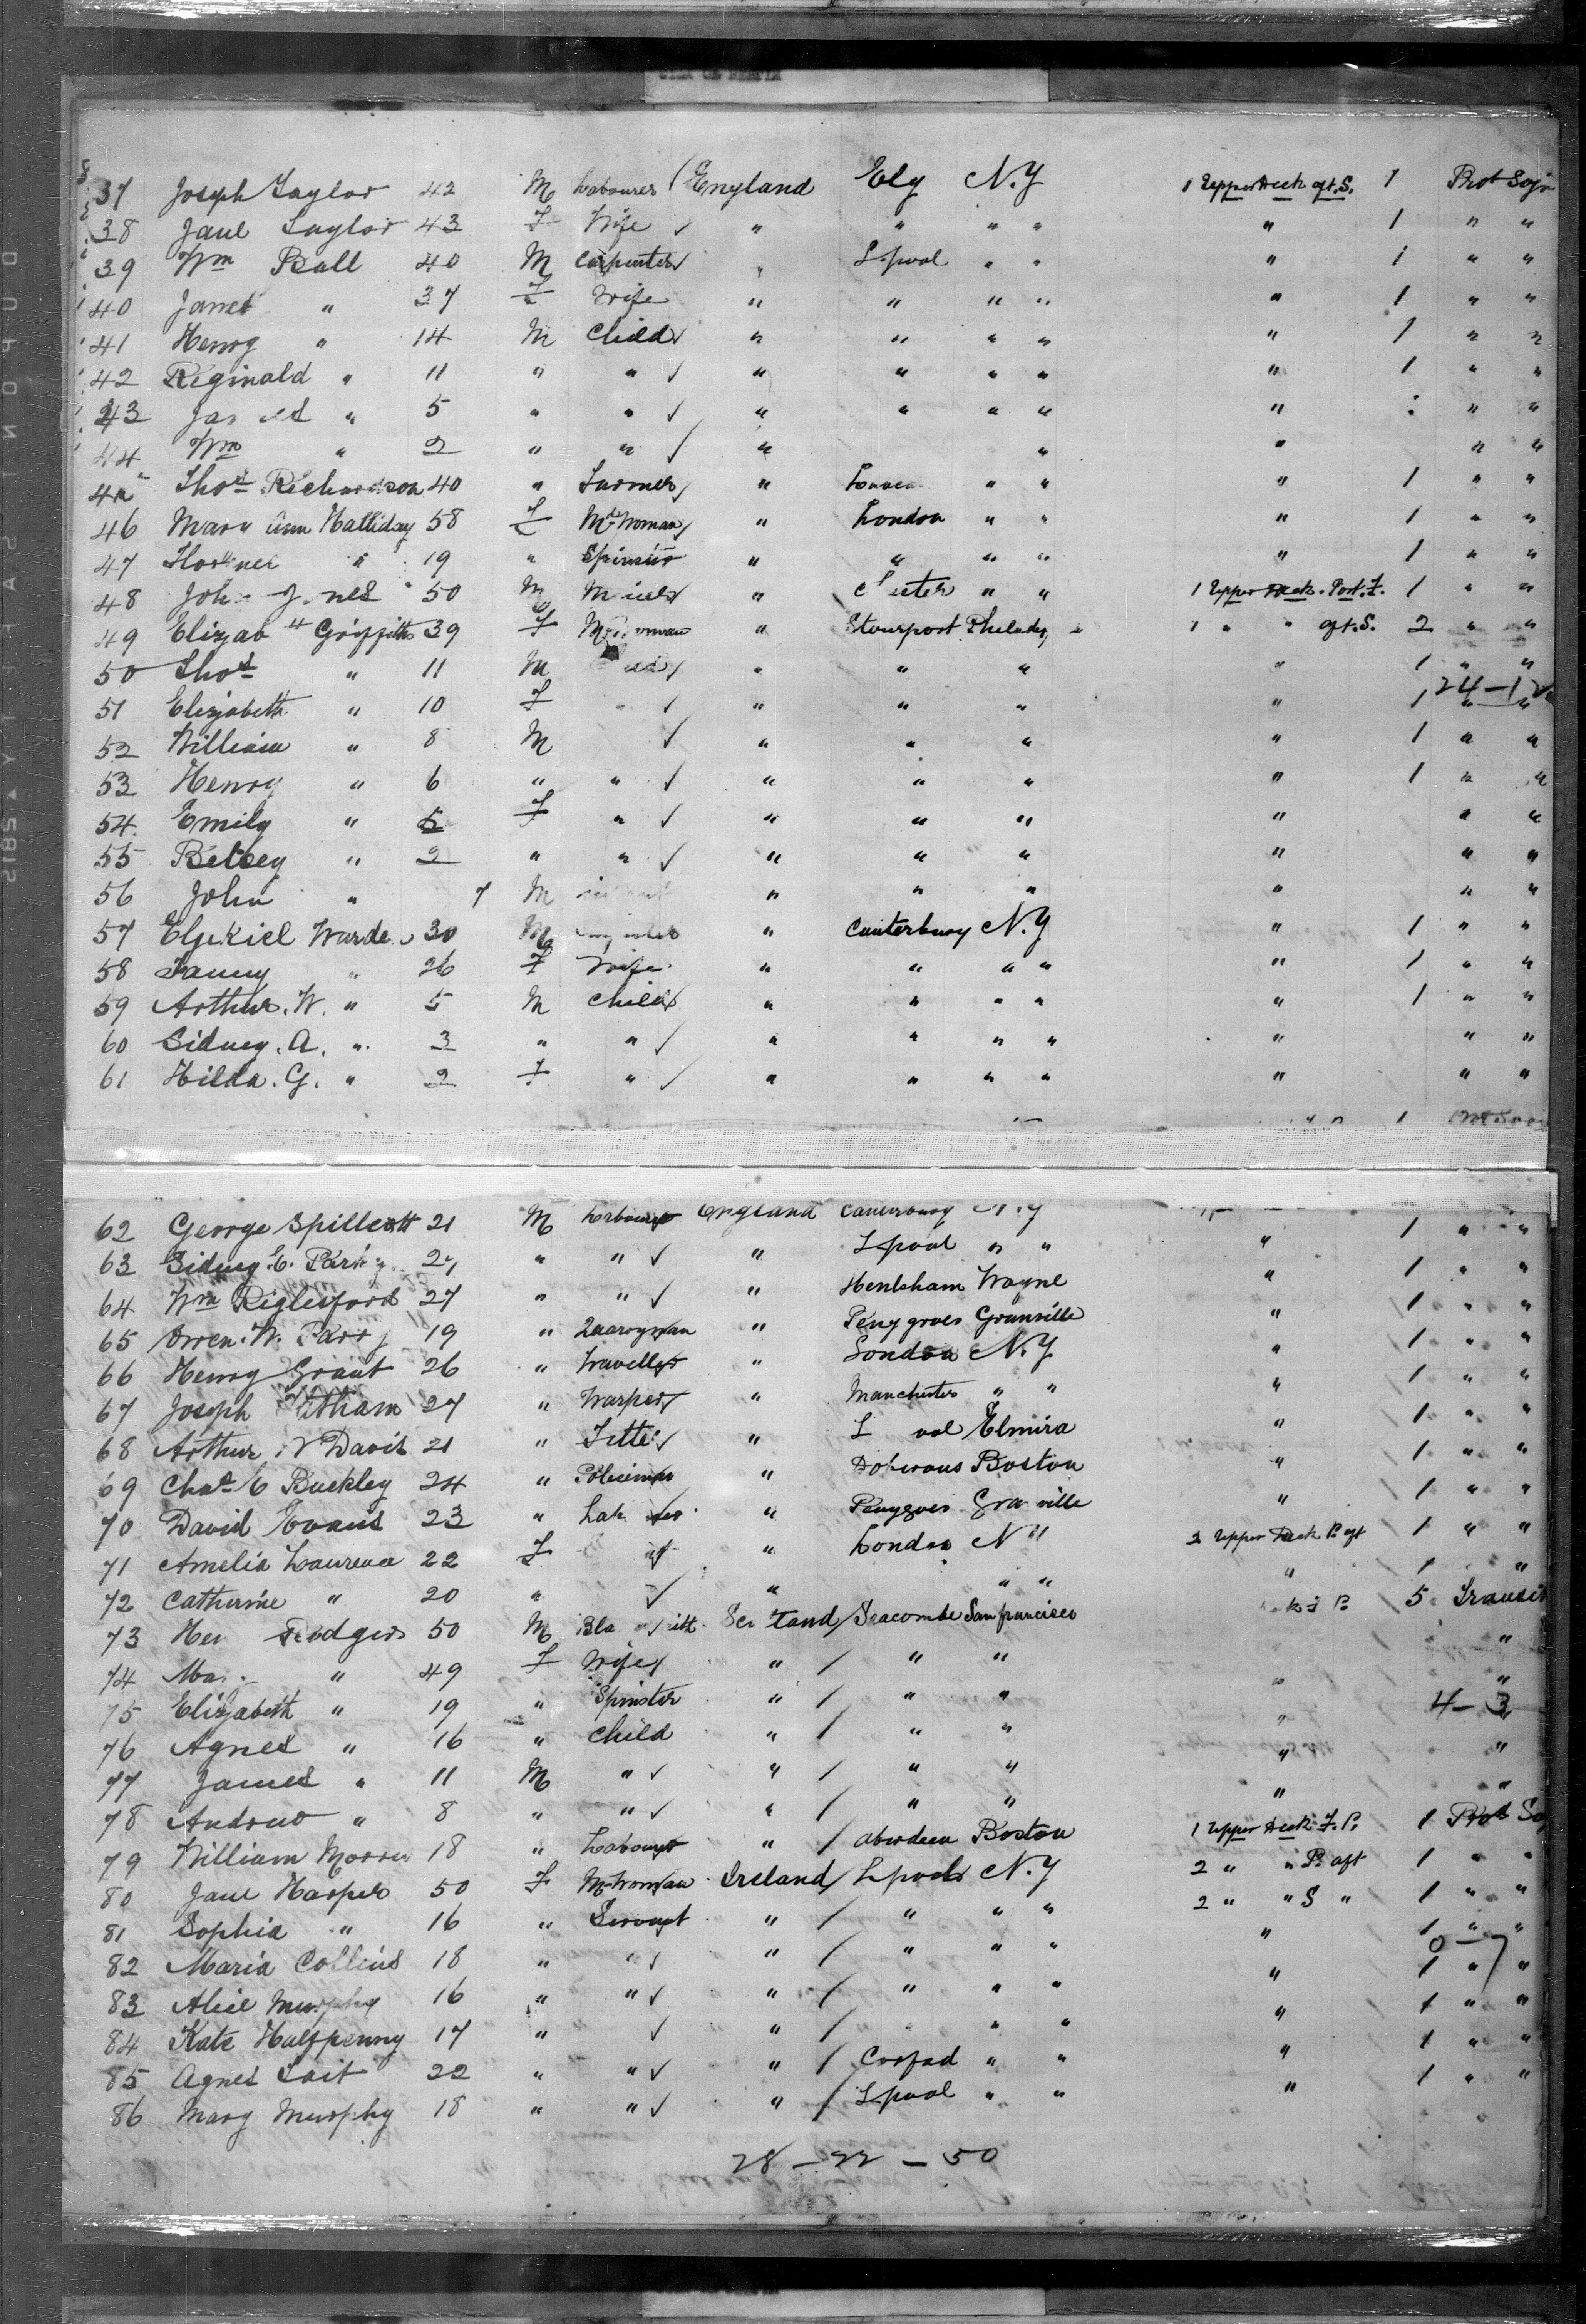 37 Joseph Taylor 42 M Labourer England Ely N.Y 1 Upper Deck aft. S. 1 Prot Sojn
38 Jane Taylor 43 F Wife " " " " " 1 " "
39 Wm Ball 40 M Carpenter " L'pool " " " 1 " "
40 Janet " 37 F Wife " " " " " 1 " "
41 Henry " 14 M Child " " " " " 1 " "
42 Reginald " 11 " " " " " " " 1 " "
43 " 5 " " " " " " " " "
44 Wm " 2 " " " " " " "
Thos Richardson 40 " Farmer " " " " 1 " "
46 Mary Ann Halliday 58 F Md Woman " London " " " 1 " "
47 " 19 " Spinster " " " " " 1 " "
48 John 50 M " " " 1 Upper Deck. Port. F. 1 " "
49 Griffiths 39 F " Stourport 1 " " aft. S. 2 " "
50 Thos " 11 M " " " " 1 " "
51 Elizabeth " 10 F " " " " " 1 " "
24 - 12
52 William " 8 M " " " " 1 " "
53 Henry " 6 " " " " " " 1 " "
54 Emily " 5 F " " " " " " "
55 Betsey " 2 " " " " " " " "
56 John " 7 M " " " " " "
57 30 M " Canterbury N.Y " 1 " "
58 Fanny " 26 F Wife " " " " " 1 " "
59 Arthur. W. " 5 M Child " " " " " 1 " "
60 Sidney. A. " 3 " " " " " " " " "
61 Hilda. G. " 2 F " " " " " " " "
62 George Spillett 21 M Labourer England Canterbury N.Y
63 Sidney. E. " " " L'pool " " " 1 " "
64 Wm 27 " " " Wayne " 1 " "
65 Owen. W. Parry 19 " Quarryman " Penygroes Granville " 1 " "
66 Henry Grant 26 " Traveller " London N.Y " 1 " "
67 Joseph 27 " Warper " Manchester " " " 1 " "
68 Arthur Davis 21 " Fitter " Elmira " 1 " "
69 Chas E Buckley 24 " Policeman " Boston " 1 " "
70 David Evans 23 " " " 1 " "
71 Amelia Laurence 22 F " London 2 Upper Deck P. aft 1 " "
72 Catherine " 20 " " " " " 1 "
73 50 M Seacombe San francisco 5 Transit
74 " 49 F Wife " " " "
75 Elizabeth " 19 " Spinster " " " " "
76 Agnes " 16 " Child " " " " "
4 - 3
77 James " 11 M " " " " " "
78 Andrew " 8 " " " " " " "
79 William 18 " Labourer " Aberdeen Boston 1 Upper Deck. F. P. 1 Prot
80 Jane Harper 50 F Md Woman Ireland L'pool N.Y 2 " " P. aft 1 " "
81 Sophia " 16 " Servant " " " " 2 " " S " 1 " "
82 Maria Collins 18 " " " " " " " 1 " "
0 - 7
83 Alice Murphy 16 " " " " " " " 1 " "
84 Kate Halfpenny 17 " " " " " " 1 " "
85 Agnes 22 " " " " " " 1 " "
86 Mary Murphy 18 " " " L'pool " " " 1 " "
28 - 22 - 50